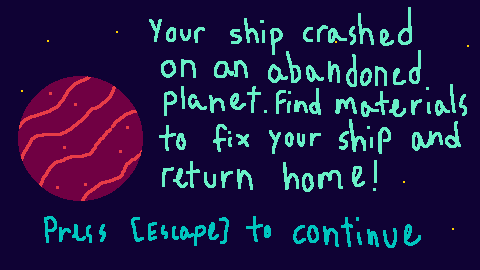 Your ship crashed
on an abandoned
planet. Find materials
to fix your ship and
return home!
Press [Escape] to continue